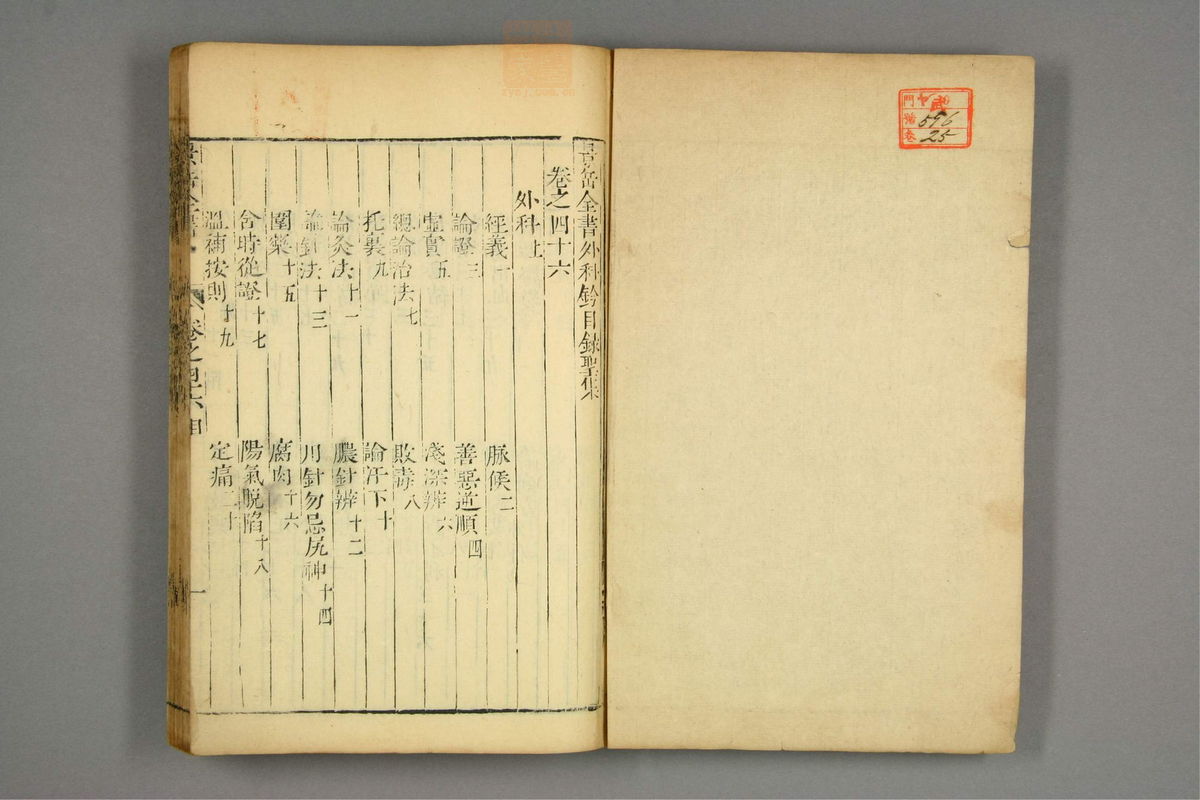 景岳全書外科鈐目錄聖集
卷之四十六
外科上
經義一 脉候二
論證三 善惡逆順四
虛實五 淺深辨六
總論治法七 敗毒八
托裏九 論汗下十
論灸法十一 膿針辨十二
論針法十三 用針勿忌尻神十四
圍藥十五 腐肉十六
舍時從證十七 陽氣脫陷十八
溫補按則十九 定痛二十
景岳全書 卷之四十六目 一
門
號 596
卷 25
zysj.com.cn